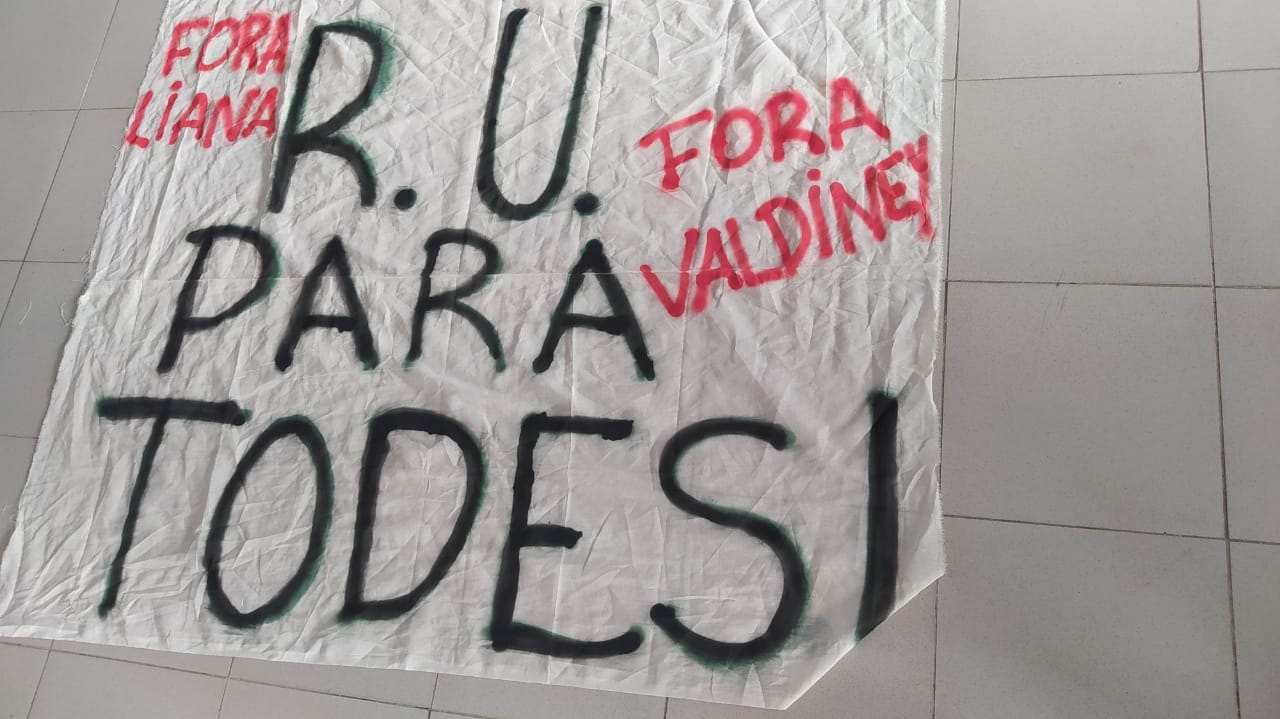 FORA
LIANA
R. U.
FORA
VALDINEY
PARA
TODES!